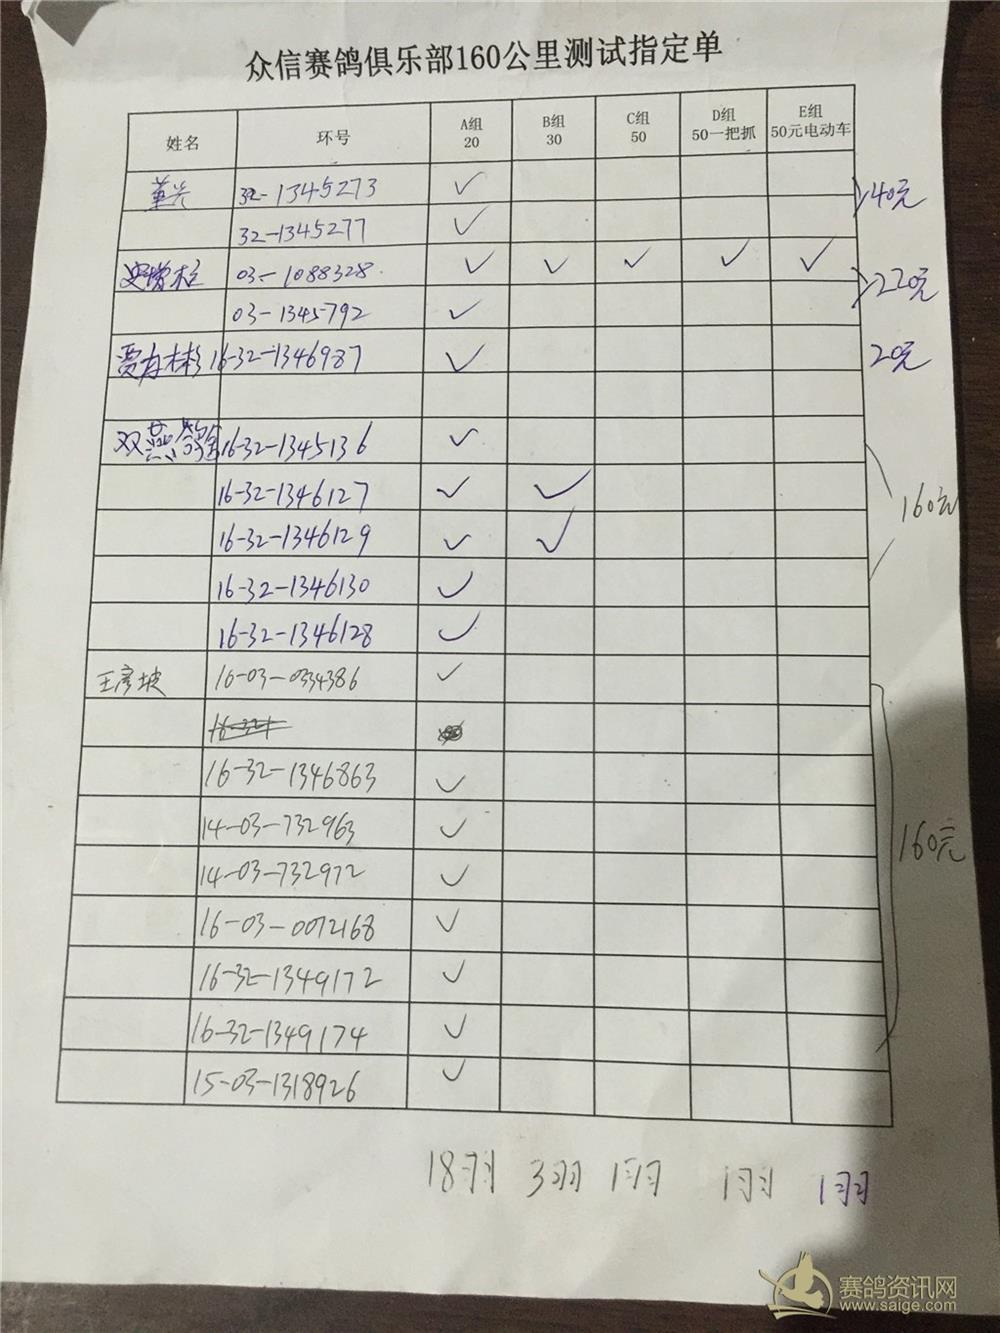 众信赛鸽俱乐部160公里测试指定单
姓名 环号 A组 20 B组 30 C组 50 D组 50一把抓 E组 50元电动车
32-1345273 ✓ 40元
32-1345277 ✓
史增柱 03-1088328 ✓ ✓ ✓ ✓ ✓ 220元
03-1345792 ✓
16-32-1346987 ✓ 20元
双燕鸽舍 16-32-1345136 ✓
16-32-1346127 ✓ ✓ 160元
16-32-1346129 ✓ ✓
16-32-1346130 ✓
16-32-1346128 ✓
王彦坡 16-03-0334386 ✓
16-32-1346863 ✓
14-03-732963 ✓ 160元
14-03-732972 ✓
16-03-0072168 ✓
16-32-1349172 ✓
16-32-1349174 ✓
15-03-1318926 ✓
18羽 3羽 1羽 1羽 1羽
赛鸽资讯网
www.saige.com